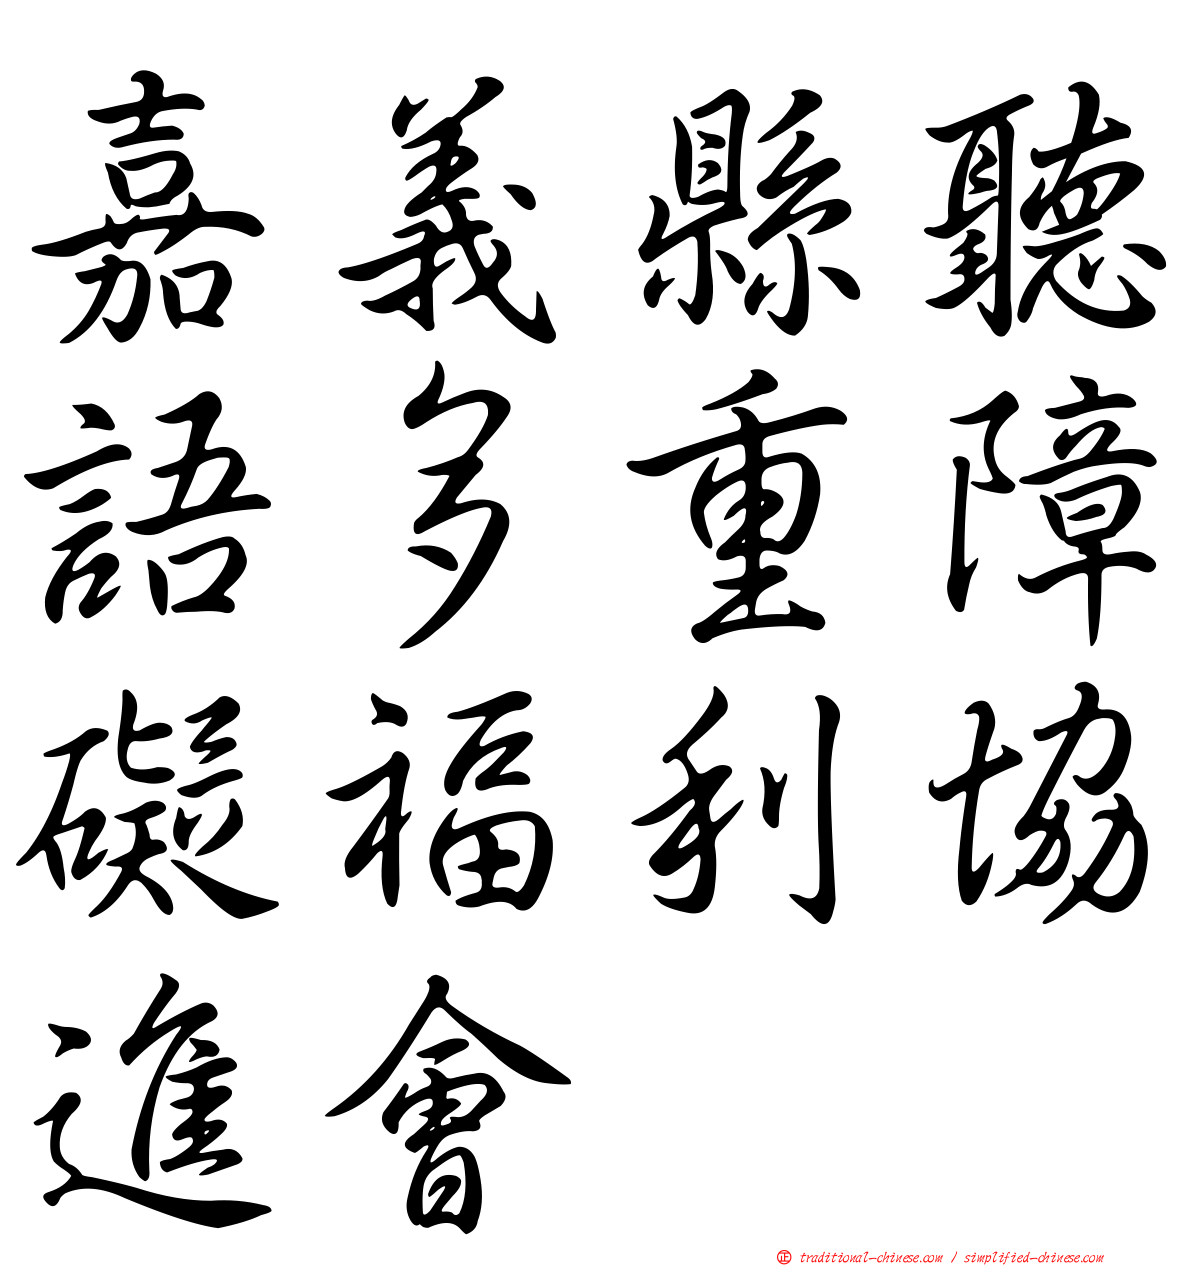 嘉義縣聽
語多重障
礙福利協
進會
正 traditional-chinese.com / simplified-chinese.com